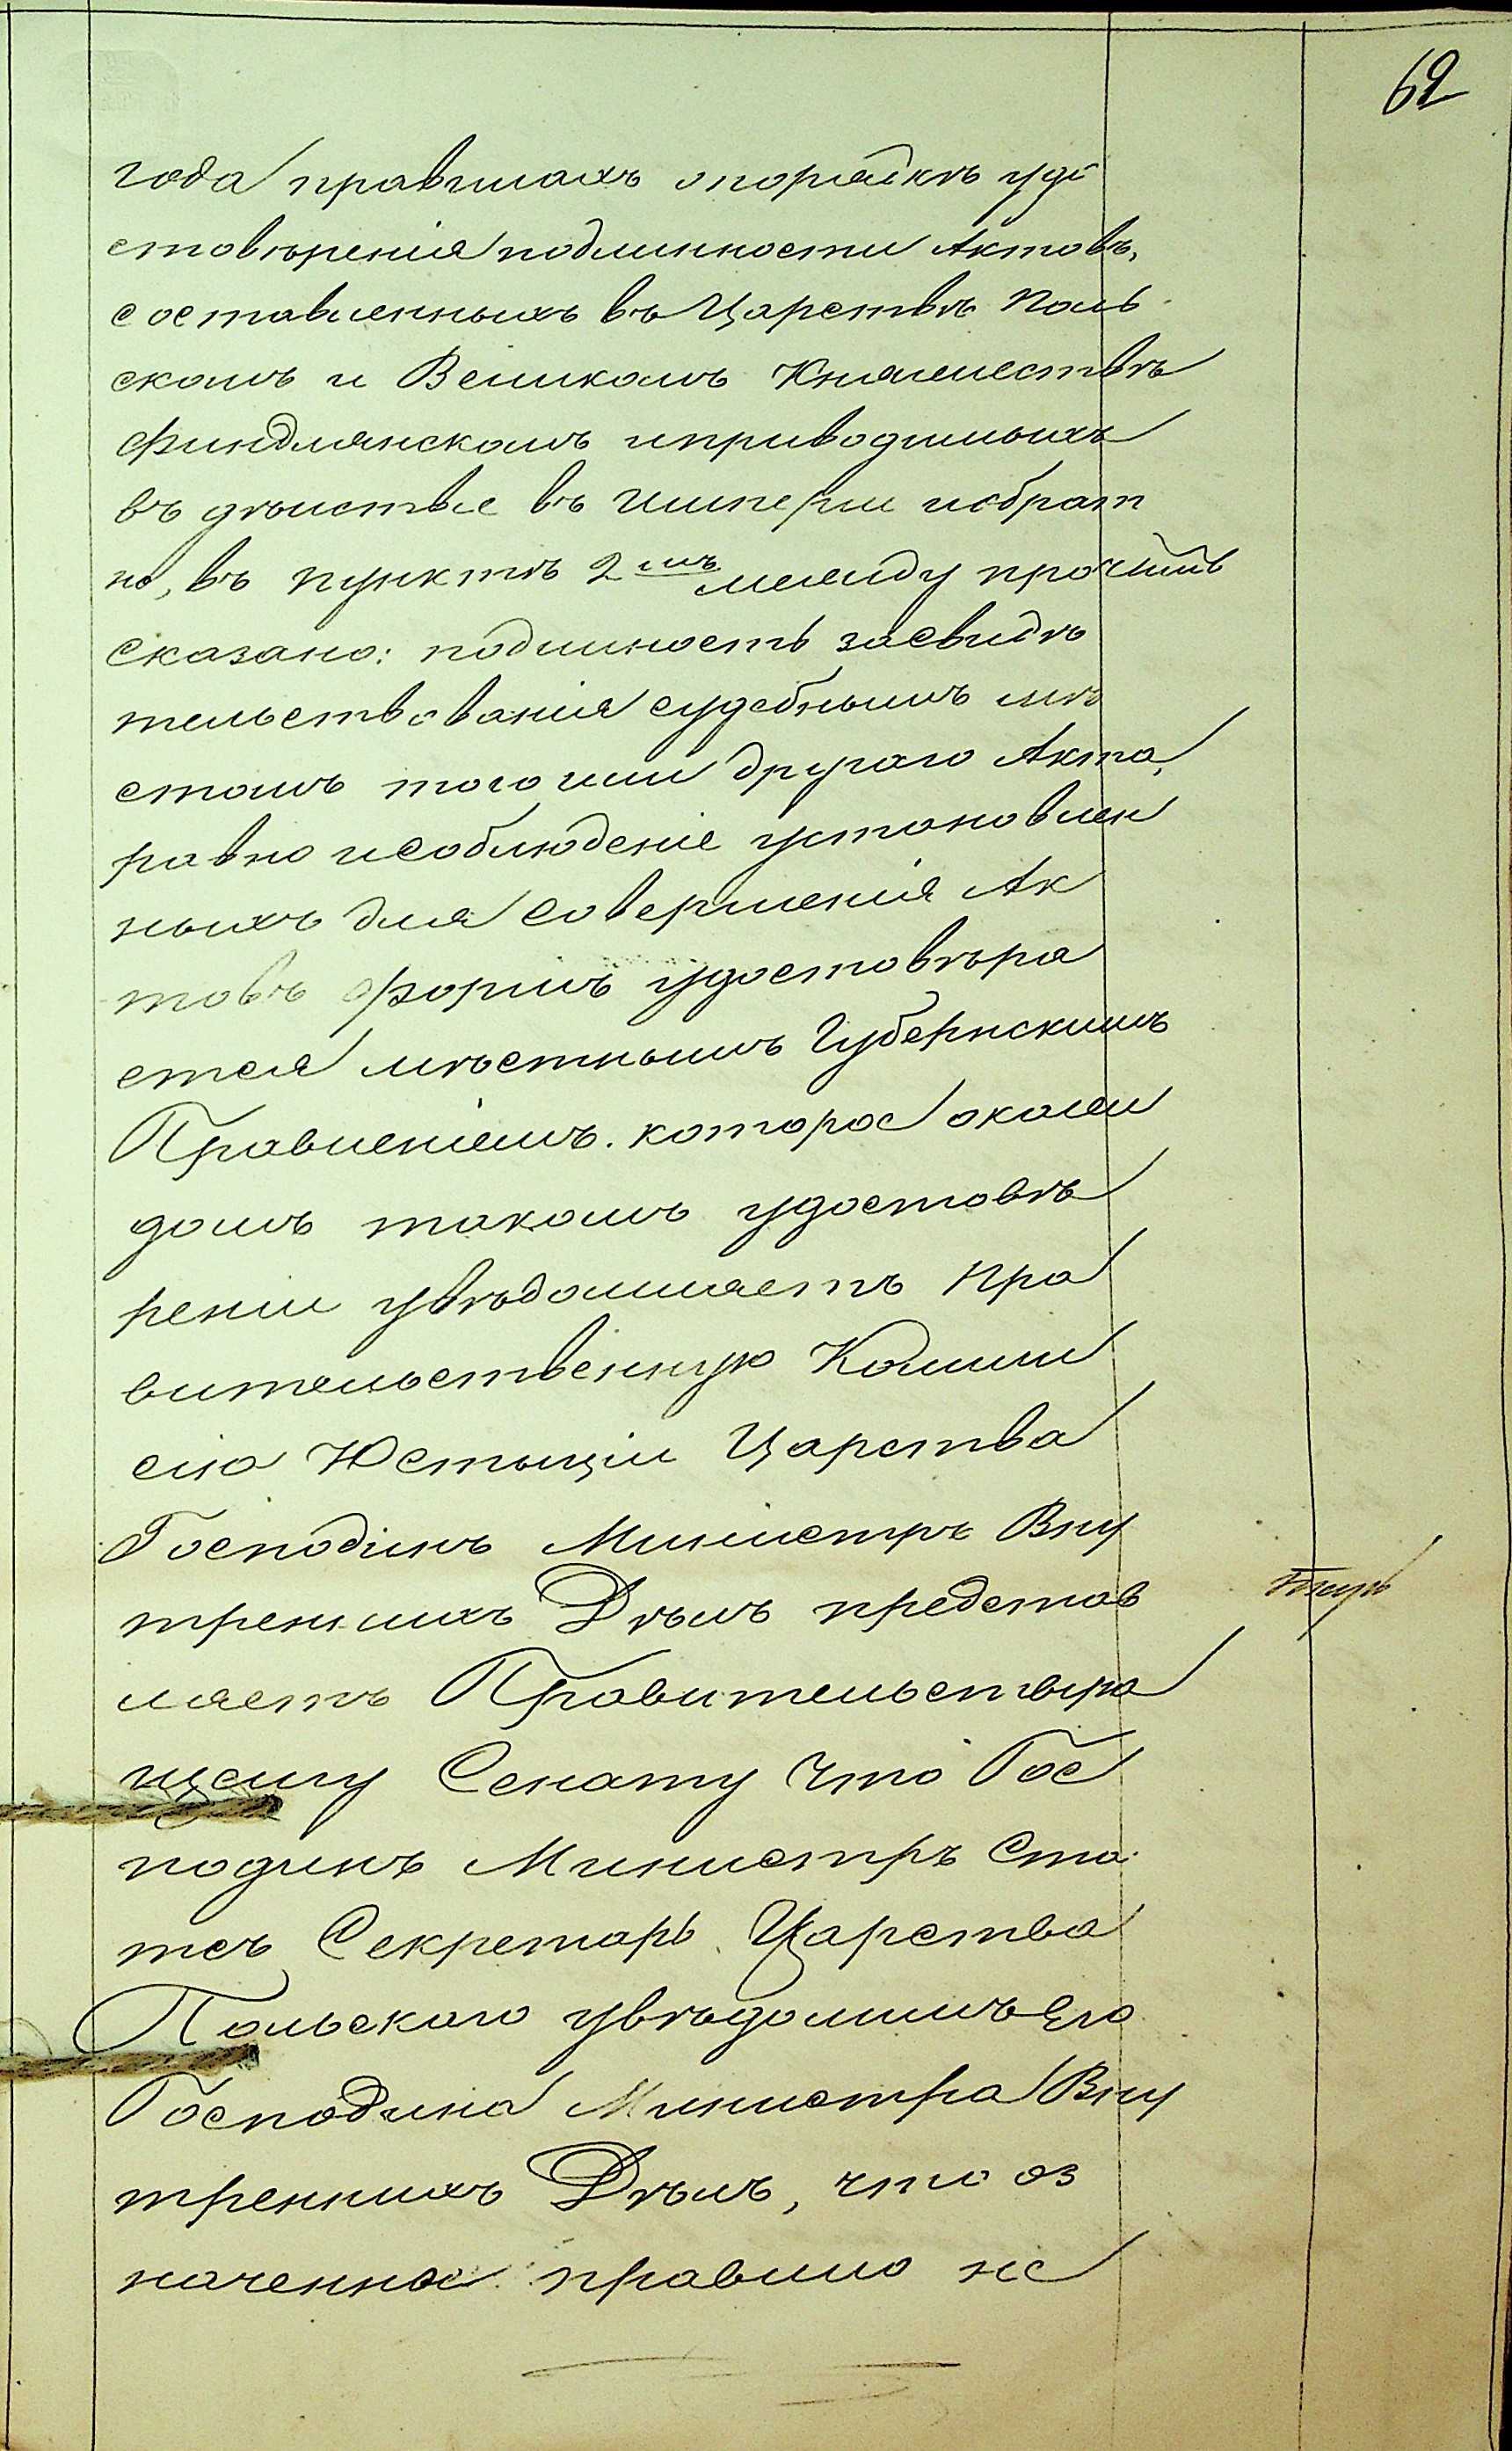 62
года правилахъ о порядкѣ удо
стовѣренія подлинности Актовъ,
составленныхъ въ Царствѣ Поль
скомъ и Великомъ Княжествѣ
Финдлянскомъ и приводимыхъ
въ дѣиствіе въ Имперіи и обрат
но, въ пунктѣ 2мъ между прочимъ
сказано: подлиность засвидѣ
тельствованія судебнымъ мѣ
стомъ того или другаго Акта,
равно и соблюденіе установлен
ныхъ для совершенія Ак
товъ формъ удостовѣря
ется мѣстнымъ Губернскимъ
Правленіемъ. которое о каж
домъ такомъ удостовѣ
реніи увѣдомляетъ Пра
вительственную Комми
сію Юстиціи Царства
Господинъ Министръ Вну
треннихъ Дѣлъ представ
ляетъ Правительствую
щему Сенату что Гос
подинъ Министръ Ста
тсъ Секретарь Царства
Польскаго увѣдомилъ Его
Господина Министра Вну
треннихъ Дѣлъ, что оз
наченное правило не